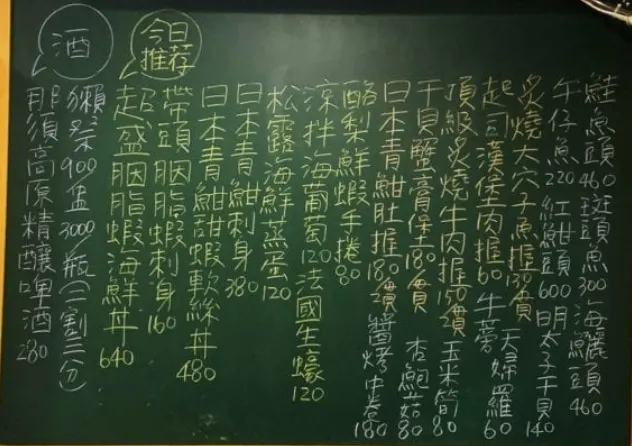 鮭魚頭460 斑頭魚300 海鱺頭460
午仔魚220 紅魽頭600 明太子干貝140
炙燒大穴子魚握130/貫
起司漢堡肉握60 牛蒡天婦羅60
頂級炙燒牛肉握150/2貫 玉米筍80
干貝蟹膏堡180/貫 杏鮑菇80
日本青魽肚握180/2貫 醬烤中卷180
酪梨鮮蝦手捲80
涼拌海葡萄120 法國生蠔120
松露海鮮蒸蛋120
日本青魽刺身380
日本青魽甜蝦軟絲丼480
今日
推荐
帶頭胭脂蝦刺身160
超盛胭脂蝦海鮮丼640
酒
獺祭900/盅 3000/瓶(二割三分)
那須高原精釀啤酒280